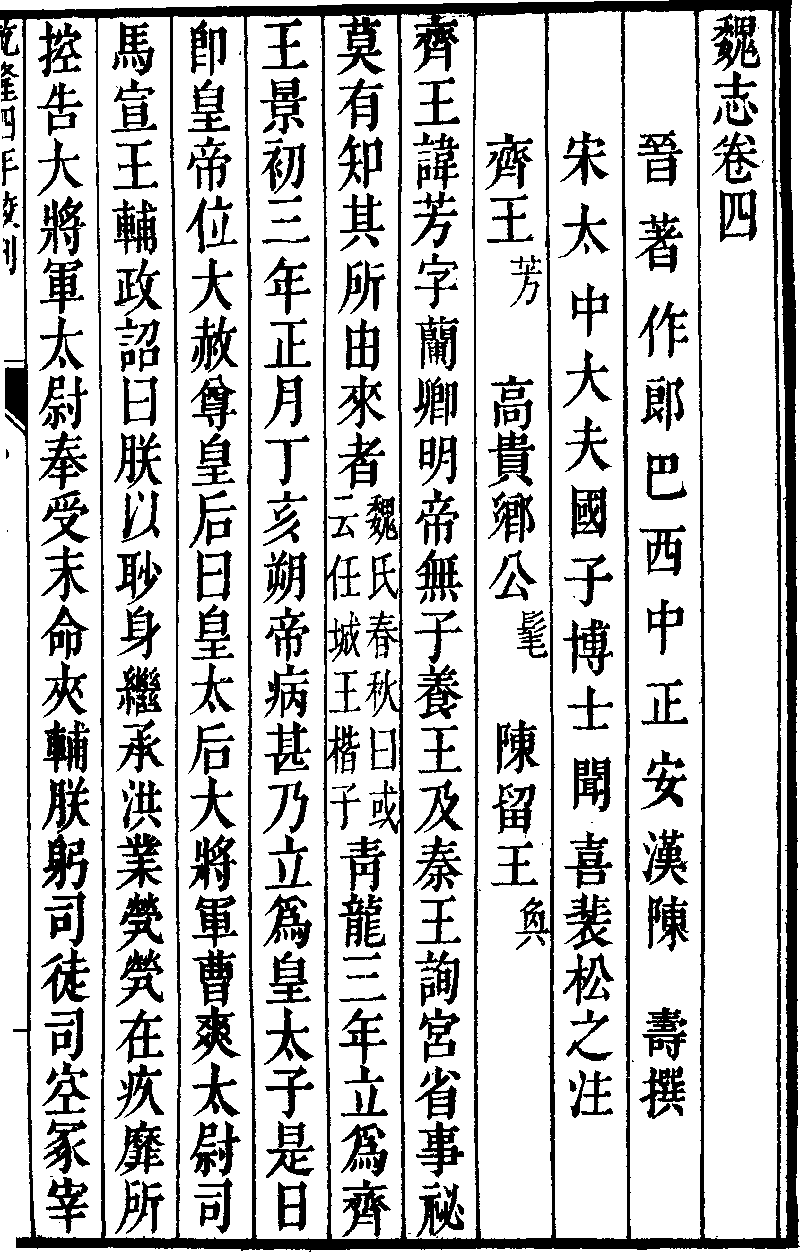 魏志卷四
晉著作郎巴西中正安漢陳　壽撰
宋太中大夫國子博士聞喜裴松之注
齊王芳　高貴鄉公髦　陳留王奐
齊王諱芳字蘭卿明帝無子養王及秦王詢宮省事祕
莫有知其所由來者魏氏春秋曰或云任城王楷子青龍三年立爲齊
王景初三年正月丁亥朔帝病甚乃立爲皇太子是日
卽皇帝位大赦尊皇后曰皇太后大將軍曹爽太尉司
馬宣王輔政詔曰朕以眇身繼承洪業煢煢在疚靡所
控告大將軍太尉奉受末命夾輔朕躬司徒司空冢宰
乾隆四年校刊